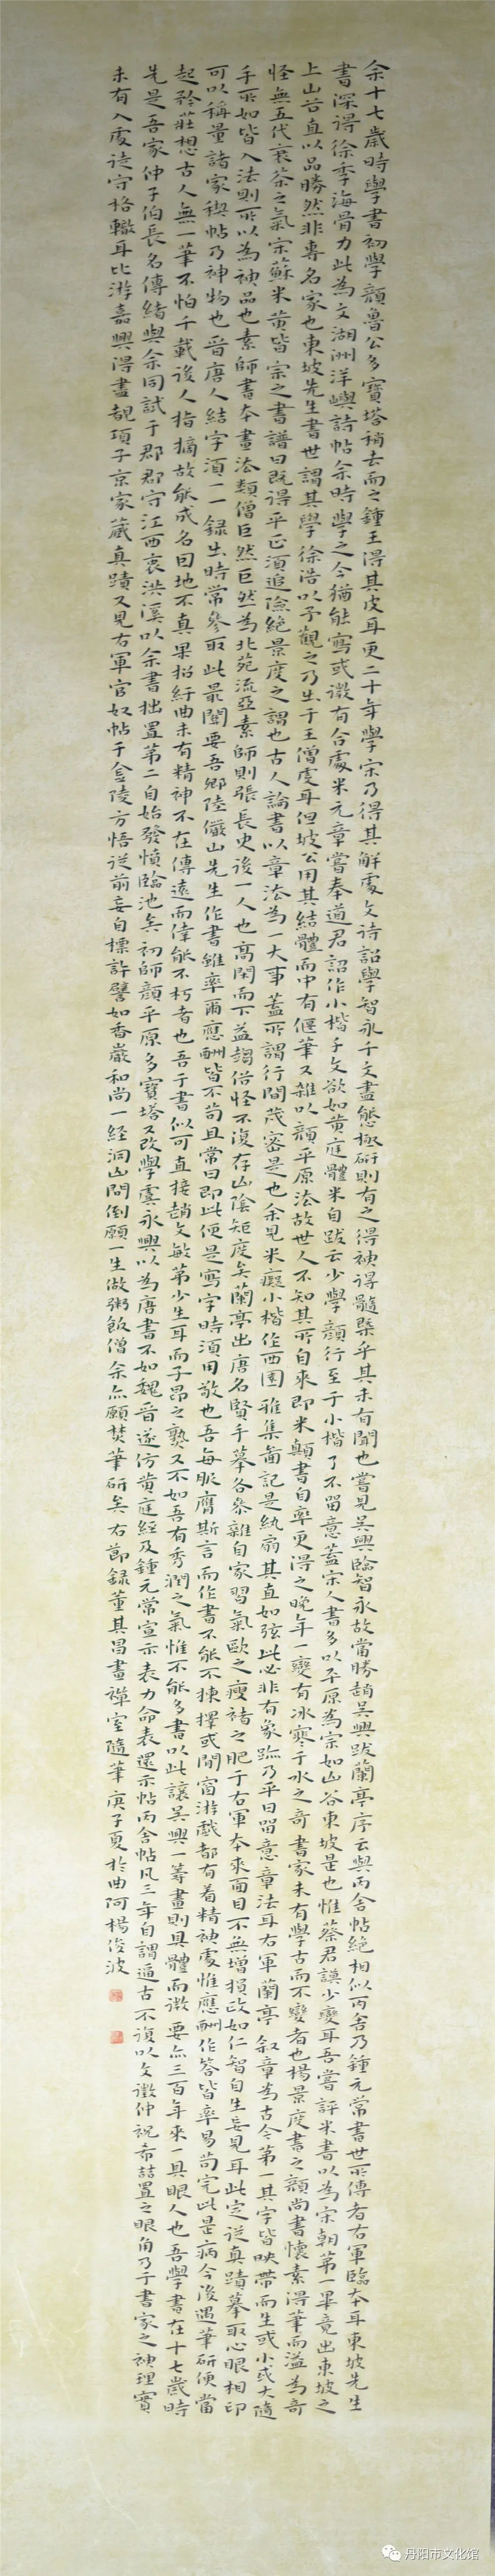 余十七歲時學書初學顏魯公多寶塔稍去而之鍾王得其皮耳更二十年學宋乃得其解處文待詔學智永千文盡態極妍則有之得神得髓槩乎其未有聞也嘗見吳興臨智永故當勝趙吳興跋蘭亭序云與丙舍帖絕相似丙舍乃鍾元常書世所傳者右軍臨本耳東坡先生
書深得徐季海骨力此為文湖洲洋嶼詩帖余時學之今猶能寫或微有合處米元章嘗奉道君詔作小楷千文欲如黃庭體米自跋云少學顏行至于小楷了不留意蓋宋人書多以平原為宗如山谷東坡是也惟蔡君謨少變耳吾嘗評米書以為宋朝第一畢竟出東坡之
上山谷直以品勝然非專名家也東坡先生書世謂其學徐浩以予觀之乃出于王僧虔耳但坡公用其結體而中有偃筆又雜以顏平原法故世人不知其所自來即米顛書自率更得之晚年一變有冰寒于水之奇書家未有學古而不變者也楊景度書之顏尚書懷素得筆而溢為奇
怪無五代衰苶之氣宗蘇米黃皆宗之書譜曰既得平正須追險絕景度之謂也古人論書以章法為一大事蓋所謂行間茂密是也余見米癡小楷作西園雅集圖記是紈扇其直如弦此必非有象跡乃平日留意章法耳右軍蘭亭敘章為古今第一其字皆映帶而生或小或大隨
手所如皆入法則所以為神品也素師書本畫法類僧巨然巨然為北苑流亞素師則張長史後一人也高閑而下益趨俗怪不復存山陰矩度矣蘭亭出唐名賢手摹各參雜自家習氣歐之瘦褚之肥于右軍本來面目不無增損政如仁智自生妄見耳此定從真蹟摹取心眼相印
可以稱量諸家禊帖乃神物也晉唐人結字須一一錄出時常參取此最關要吾鄉陸儼山先生作書雖率爾應酬皆不苟且常曰即此便是寫字時須用敬也吾每服膺斯言而作書不能不揀擇或閒窗游戲都有着精神處惟應酬作答皆率易苟完此是病今後遇筆研便當
起矜莊想古人無一筆不怕千載後人指摘故能成名因地不真果招紆曲未有精神不在傳遠而偉能不朽者也吾于書似可直接趙文敏第少生耳而子昂之熟又不如吾有秀潤之氣惟不能多書以此讓吳興一籌畫則具體而微要亦三百年來一具眼人也吾學書在十七歲時
先是吾家仲子伯長名傳緒與余同試于郡郡守江西衷洪溪以余書拙置第二自始發憤臨池矣初師顏平原多寶塔又改學虞永興以為唐書不如魏晉遂仿黃庭經及鍾元常宣示表力命表還示帖丙舍帖凡三年自謂逼古不復以文徵仲祝希喆置之眼角乃于書家之神理實
未有入處徒守格轍耳比游嘉興得盡覩項子京家藏真蹟又見右軍官奴帖于金陵方悟從前妄自標許譬如香巖和尚一經洞山問倒願一生做粥飯僧余亦願焚筆研矣右節錄董其昌畫禪室隨筆庚子夏於曲阿楊俊波
丹阳市文化馆